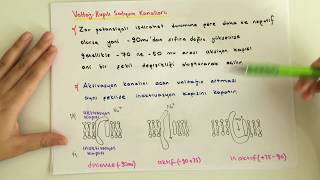 Voltaj Kapılı Sodyum Kanalları
Zar potansiyeli istirahat durumuna göre daha az negatif
olursa yani -90mv'dan sıfıra doğru yükselirse
genellikle -70 ile -50 mv arası aktivasyon kapısı
ani bir şekil değişikliği oluşturarak açılır.
Aktivasyon kanalını açan voltajın artması
aynı şekilde inaktivasyon kapısını kapatır.
Na+
Na+
aktivasyon
kapısı
inaktivasyon
kapısı
dinlenme (-90mv)
aktif (-90 +35)
inaktif (+35 -90)